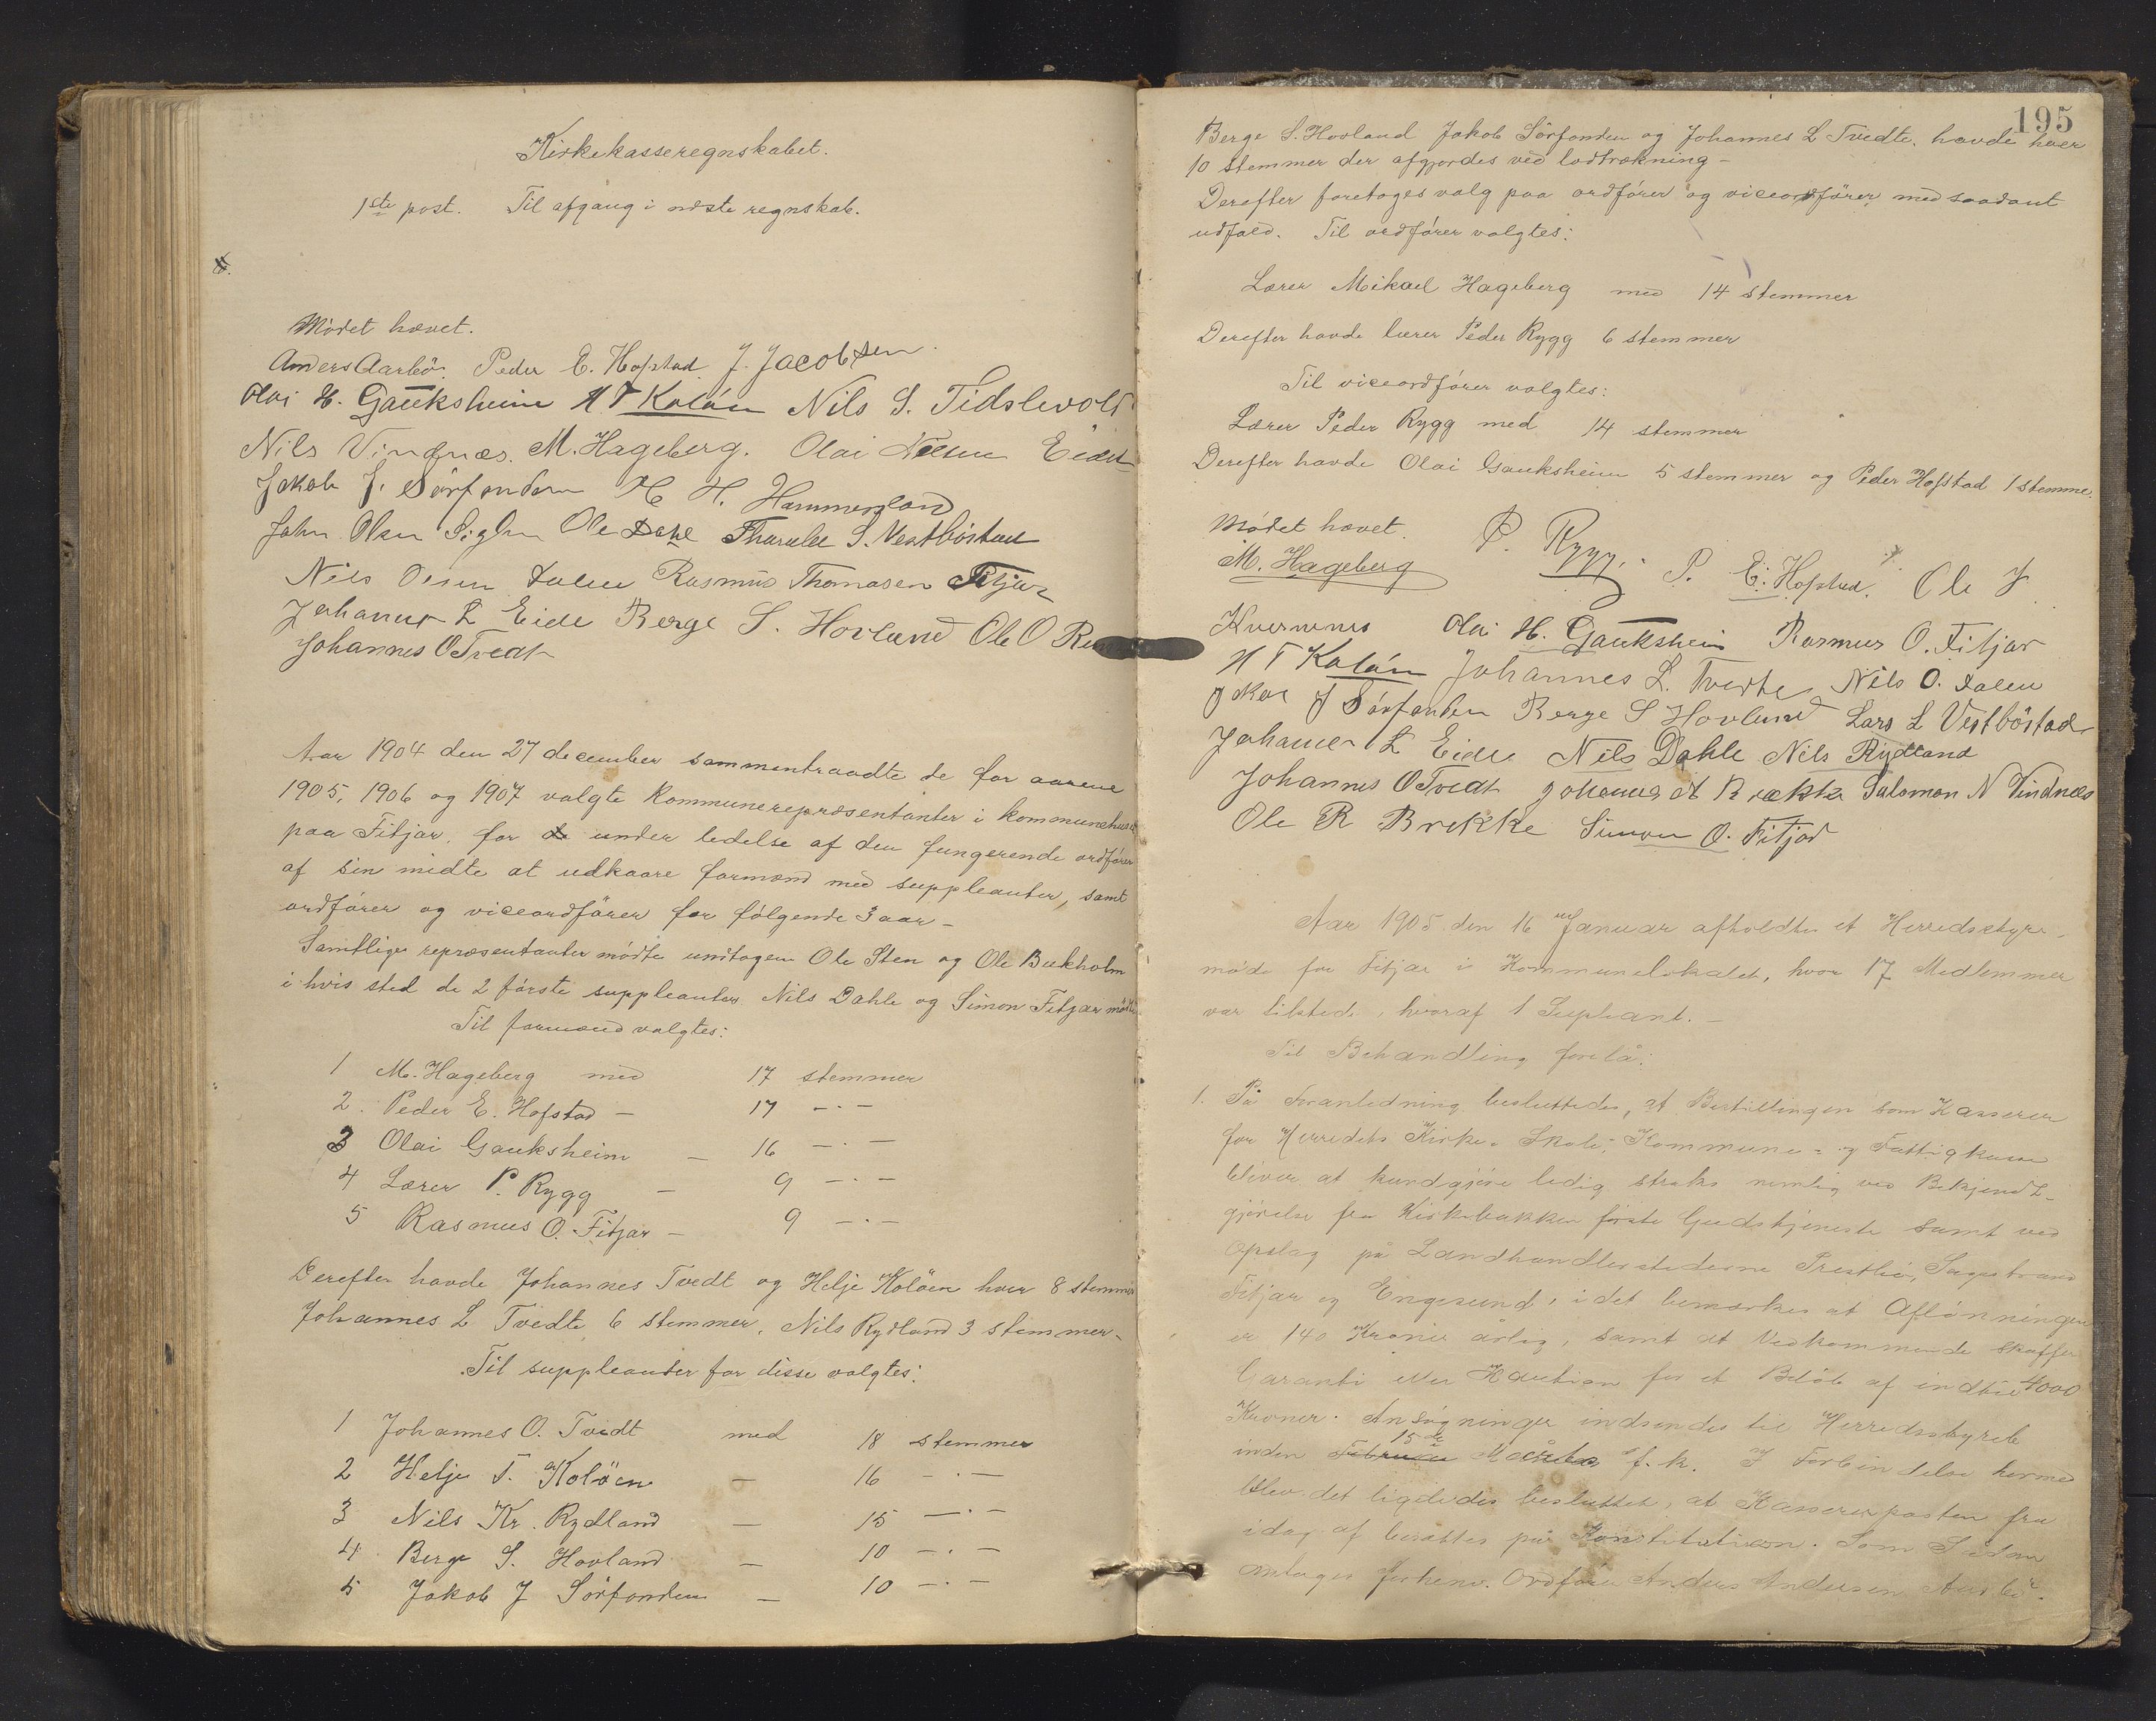 Kirkekasseregnskabet.
1ste post. Til afgang i næste regnskab.
Mödet hævet.
Anders Aarbö. Peder E. Hofstad J. Jacobsen.
Olai H. Gauksheim H T Kolöen Nils S. Tidslevold
Nils Vindnæs. M. Hageberg. Olai Nilsen Eidet
Jakob J. Sörfonden H. Hammersland
John Olsen Ole Dahl S. Vestböstad
Nils Olsen Dalen Rasmus Thomasen Fitjar
Johannes L Eide Berge S. Hovland Ole O
Johannes O Tvedt
Aar 1904 den 27 december sammentraadte de for aarene
1905, 1906 og 1907 valgte kommunerepræsentanter i kommunehuset
paa Fitjar, for under ledelse af den fungerende ordförer
af sin midte at udkaare formænd med suppleanter, samt
ordförer og viceordförer for fölgende 3 aar –
Samtlige repræsentanter mödte undtagen Ole Sten og Ole Bækholm
i hvis sted de 2 förste suppleanter Nils Dahle og Simon Fitjar mödte
Til formænd valgtes:
1 M. Hageberg med 17 stemmer
2. Peder E. Hofstad – 17 –·–
3 Olai Gauksheim – 16 –·–
4 Lærer P. Rygg – 9 –·–
5 Rasmus O. Fitjar – 9 –·–
Derefter havde Johannes Tvedt og Helje Kolöen hver 8 stemmer
Johannes L. Tvedte 6 stemmer, Nils Rydland 3 stemmer –
Til suppleanter for disse valgtes:
1 Johannes O. Tvedt med 18 stemmer
2 Helje T. Kolöen – 16 –·–
3 Nils Kr. Rydland – 15 –·–
4 Berge S. Hovland – 10 –·–
5 Jakob J Sörfonden – 10 –·–
195
Berge S. Hovland Jakob Sörfonden og Johannes L Tvedte. havde hver
10 stemmer der afgjordes ved lodtrækning –
Derefter foretoges valg paa ordförer og viceordförer med saadant
udfald. Til ordförer valgtes:
Lærer Mikael Hageberg med 14 stemmer
Derefter havde lærer Peder Rygg 6 stemmer
Til viceordförer valgtes:
Lærer Peder Rygg med 14 stemmer
Derefter havde Olai Gauksheim 5 stemmer og Peder Hofstad 1 stemme.
Mödet hævet.
M. Hageberg P. Rygg. P. E. Hofstad. Ole J
Kvernenes Olai H. Gauksheim Rasmus O. Fitjar
H T Kolöen Johannes L. Tvedte Nils O. Dalen
Jakob J Sörfonden Berge S Hovland Lars L Vestböstad
Johannes L Eide Nils Dahle Nils Rydland
Johannes O Tvedt Johannes Brække Salomon N Vindnes
Ole R Brekke Simon O. Fitjar
Aar 1905 den 16 Januar afholdtes et Herredsstyre-
möde for Fitjar i Kommunelokalet, hvor 17 Medlemmer
var tilstede, hvoraf 1 Supleant. –
Til Behandling forelå:
1. På Foranledning besluttedes, at Bestillingen som Kasserer
for Herredets Kirke-, Skole-, Kommune- og Fattigkasse
bliver at kundgjöre ledig straks nemlig ved Bekjendt-
gjörelse fra Kirkebakken förste Gudstjeneste samt ved
Opslag på Landhandlerstederne Prestbö, Sagestrand
Fitjar og Engesund, idet bemærkes at Aflönningen
er 140 Kroner årlig, samt at Vedkommende skaffer
Garanti eller Kaution for et Belöb af indtil 4000
Kroner. Ansögninger indsendes til Herredsstyrets
inden Februar 15de Marts f. k. I Forbindelse hermed
blev det ligeledes besluttet, at Kassererposten fra
idag af besættes på Konstitution. Som Sådan
antages forhenv. Ordförer Anders Andersen Aarbö.